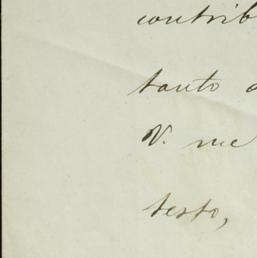 contrib
tanto
V. me
testo,